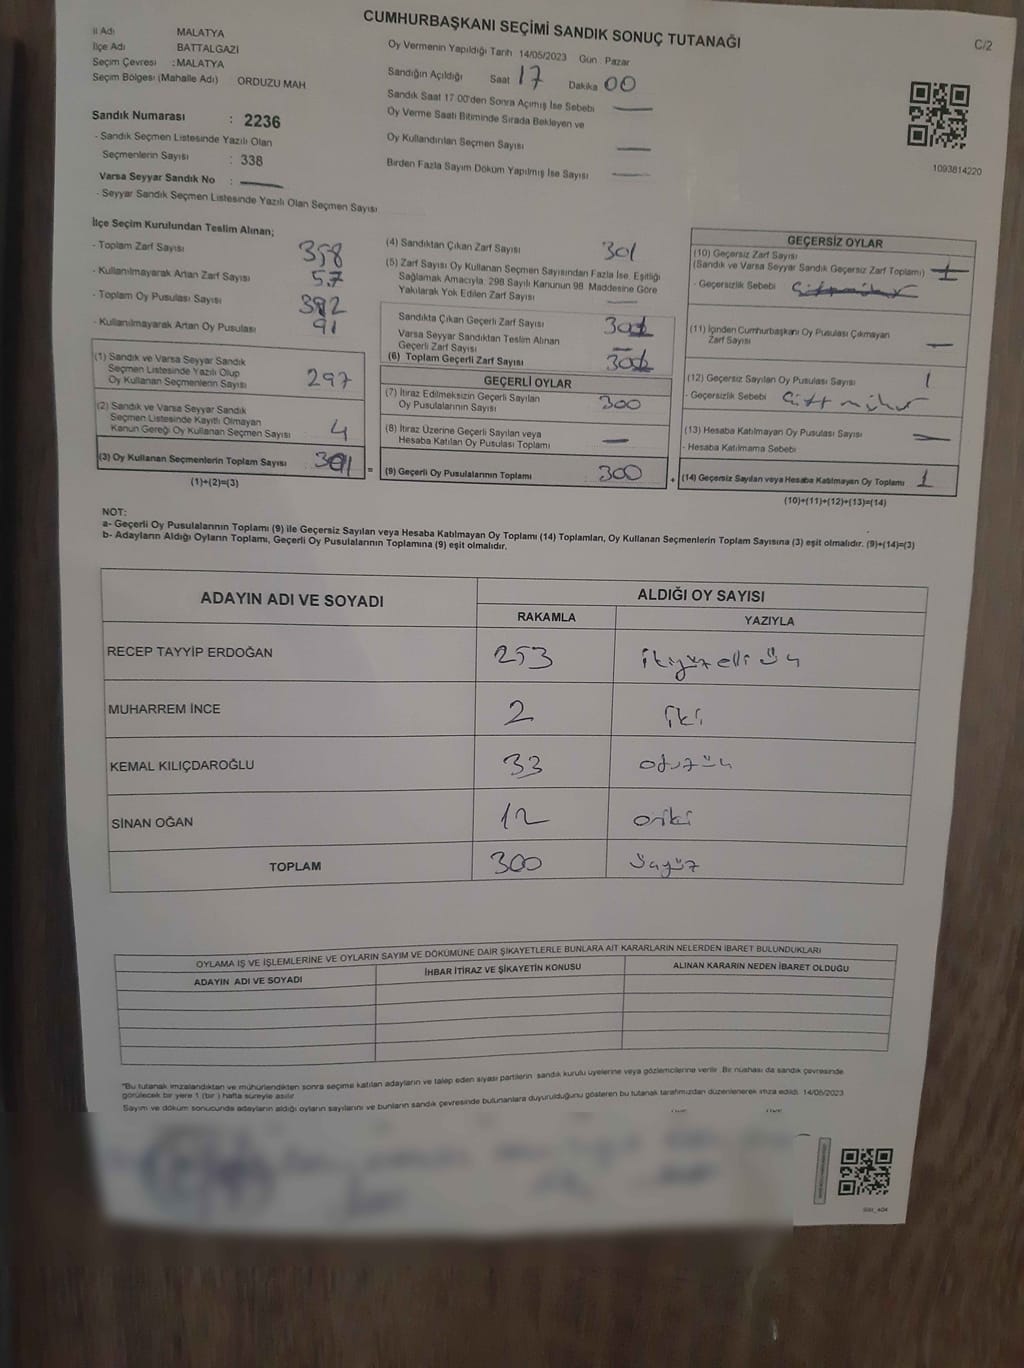 CUMHURBAŞKANI SEÇİMİ SANDIK SONUÇ TUTANAĞI
C/2
İl Adı MALATYA
İlçe Adı BATTALGAZİ
Seçim Çevresi : MALATYA
Seçim Bölgesi (Mahalle Adı) ORDUZU MAH
Sandık Numarası : 2236
- Sandık Seçmen Listesinde Yazılı Olan
Seçmenlerin Sayısı : 338
Varsa Seyyar Sandık No : —
- Seyyar Sandık Seçmen Listesinde Yazılı Olan Seçmen Sayısı
Oy Vermenin Yapıldığı Tarih 14/05/2023 Gün : Pazar
Sandığın Açıldığı Saat 17 Dakika 00
Sandık Saat 17:00'den Sonra Açımış İse Sebebi —
Oy Verme Saati Bitiminde Sırada Bekleyen ve
Oy Kullandırılan Seçmen Sayısı —
Birden Fazla Sayım Döküm Yapılmış İse Sayısı —
1093814220
İlçe Seçim Kurulundan Teslim Alınan;
- Toplam Zarf Sayısı 358
- Kullanılmayarak Artan Zarf Sayısı 57
- Toplam Oy Pusulası Sayısı 392
- Kullanılmayarak Artan Oy Pusulası 91
(1) Sandık ve Varsa Seyyar Sandık
Seçmen Listesinde Yazılı Olup
Oy Kullanan Seçmenlerin Sayısı 297
(2) Sandık ve Varsa Seyyar Sandık
Seçmen Listesinde Kayıtlı Olmayan
Kanun Gereği Oy Kullanan Seçmen Sayısı 4
(3) Oy Kullanan Seçmenlerin Toplam Sayısı 301
(1)+(2)=(3)
(4) Sandıktan Çıkan Zarf Sayısı 301
(5) Zarf Sayısı Oy Kullanan Seçmen Sayısından Fazla İse, Eşitliği
Sağlamak Amacıyla, 298 Sayılı Kanunun 98. Maddesine Göre
Yakılarak Yok Edilen Zarf Sayısı —
Sandıkta Çıkan Geçerli Zarf Sayısı
Varsa Seyyar Sandıktan Teslim Alınan
Geçerli Zarf Sayısı —
(6) Toplam Geçerli Zarf Sayısı
=
GEÇERLİ OYLAR
(7) İtiraz Edilmeksizin Geçerli Sayılan
Oy Pusulalarının Sayısı 300
(8) İtiraz Üzerine Geçerli Sayılan veya
Hesaba Katılan Oy Pusulası Toplamı —
(9) Geçerli Oy Pusulalarının Toplamı 300
+
GEÇERSİZ OYLAR
(10) Geçersiz Zarf Sayısı
(Sandık ve Varsa Seyyar Sandık Geçersiz Zarf Toplamı)
- Geçersizlik Sebebi
(11) İçinden Cumhurbaşkanı Oy Pusulası Çıkmayan
Zarf Sayısı —
(12) Geçersiz Sayılan Oy Pusulası Sayısı 1
- Geçersizlik Sebebi Çift mühür
(13) Hesaba Katılmayan Oy Pusulası Sayısı —
- Hesaba Katılmama Sebebi
(14) Geçersiz Sayılan veya Hesaba Katılmayan Oy Toplamı 1
(10)+(11)+(12)+(13)=(14)
NOT:
a- Geçerli Oy Pusulalarının Toplamı (9) ile Geçersiz Sayılan veya Hesaba Katılmayan Oy Toplamı (14) Toplamları, Oy Kullanan Seçmenlerin Toplam Sayısına (3) eşit olmalıdır. (9)+(14)=(3)
b- Adayların Aldığı Oyların Toplamı, Geçerli Oy Pusulalarının Toplamına (9) eşit olmalıdır.
ADAYIN ADI VE SOYADI ALDIĞI OY SAYISI
RAKAMLA YAZIYLA
RECEP TAYYİP ERDOĞAN 253 ikiyüzelli üç
MUHARREM İNCE 2 iki
KEMAL KILIÇDAROĞLU 33 otuzüç
SİNAN OĞAN 12 oniki
TOPLAM 300 üçyüz
OYLAMA İŞ VE İŞLEMLERİNE VE OYLARIN SAYIM VE DÖKÜMÜNE DAİR ŞİKAYETLERLE BUNLARA AİT KARARLARIN NELERDEN İBARET BULUNDUKLARI
ADAYIN ADI VE SOYADI İHBAR İTİRAZ VE ŞİKAYETİN KONUSU ALINAN KARARIN NEDEN İBARET OLDUĞU
"Bu tutanak imzalandıktan ve mühürlendikten sonra seçime katılan adayların ve talep eden siyasi partilerin sandık kurulu üyelerine veya gözlemcilerine verilir. Bir nüshası da sandık çevresinde
görülecek bir yere 1 (bir) hafta süreyle asılır
Sayım ve döküm sonucunda adayların aldığı oyların sayılarını ve bunların sandık çevresinde bulunanlara duyurulduğunu gösteren bu tutanak tarafımızdan düzenlenerek imza edildi. 14/05/2023